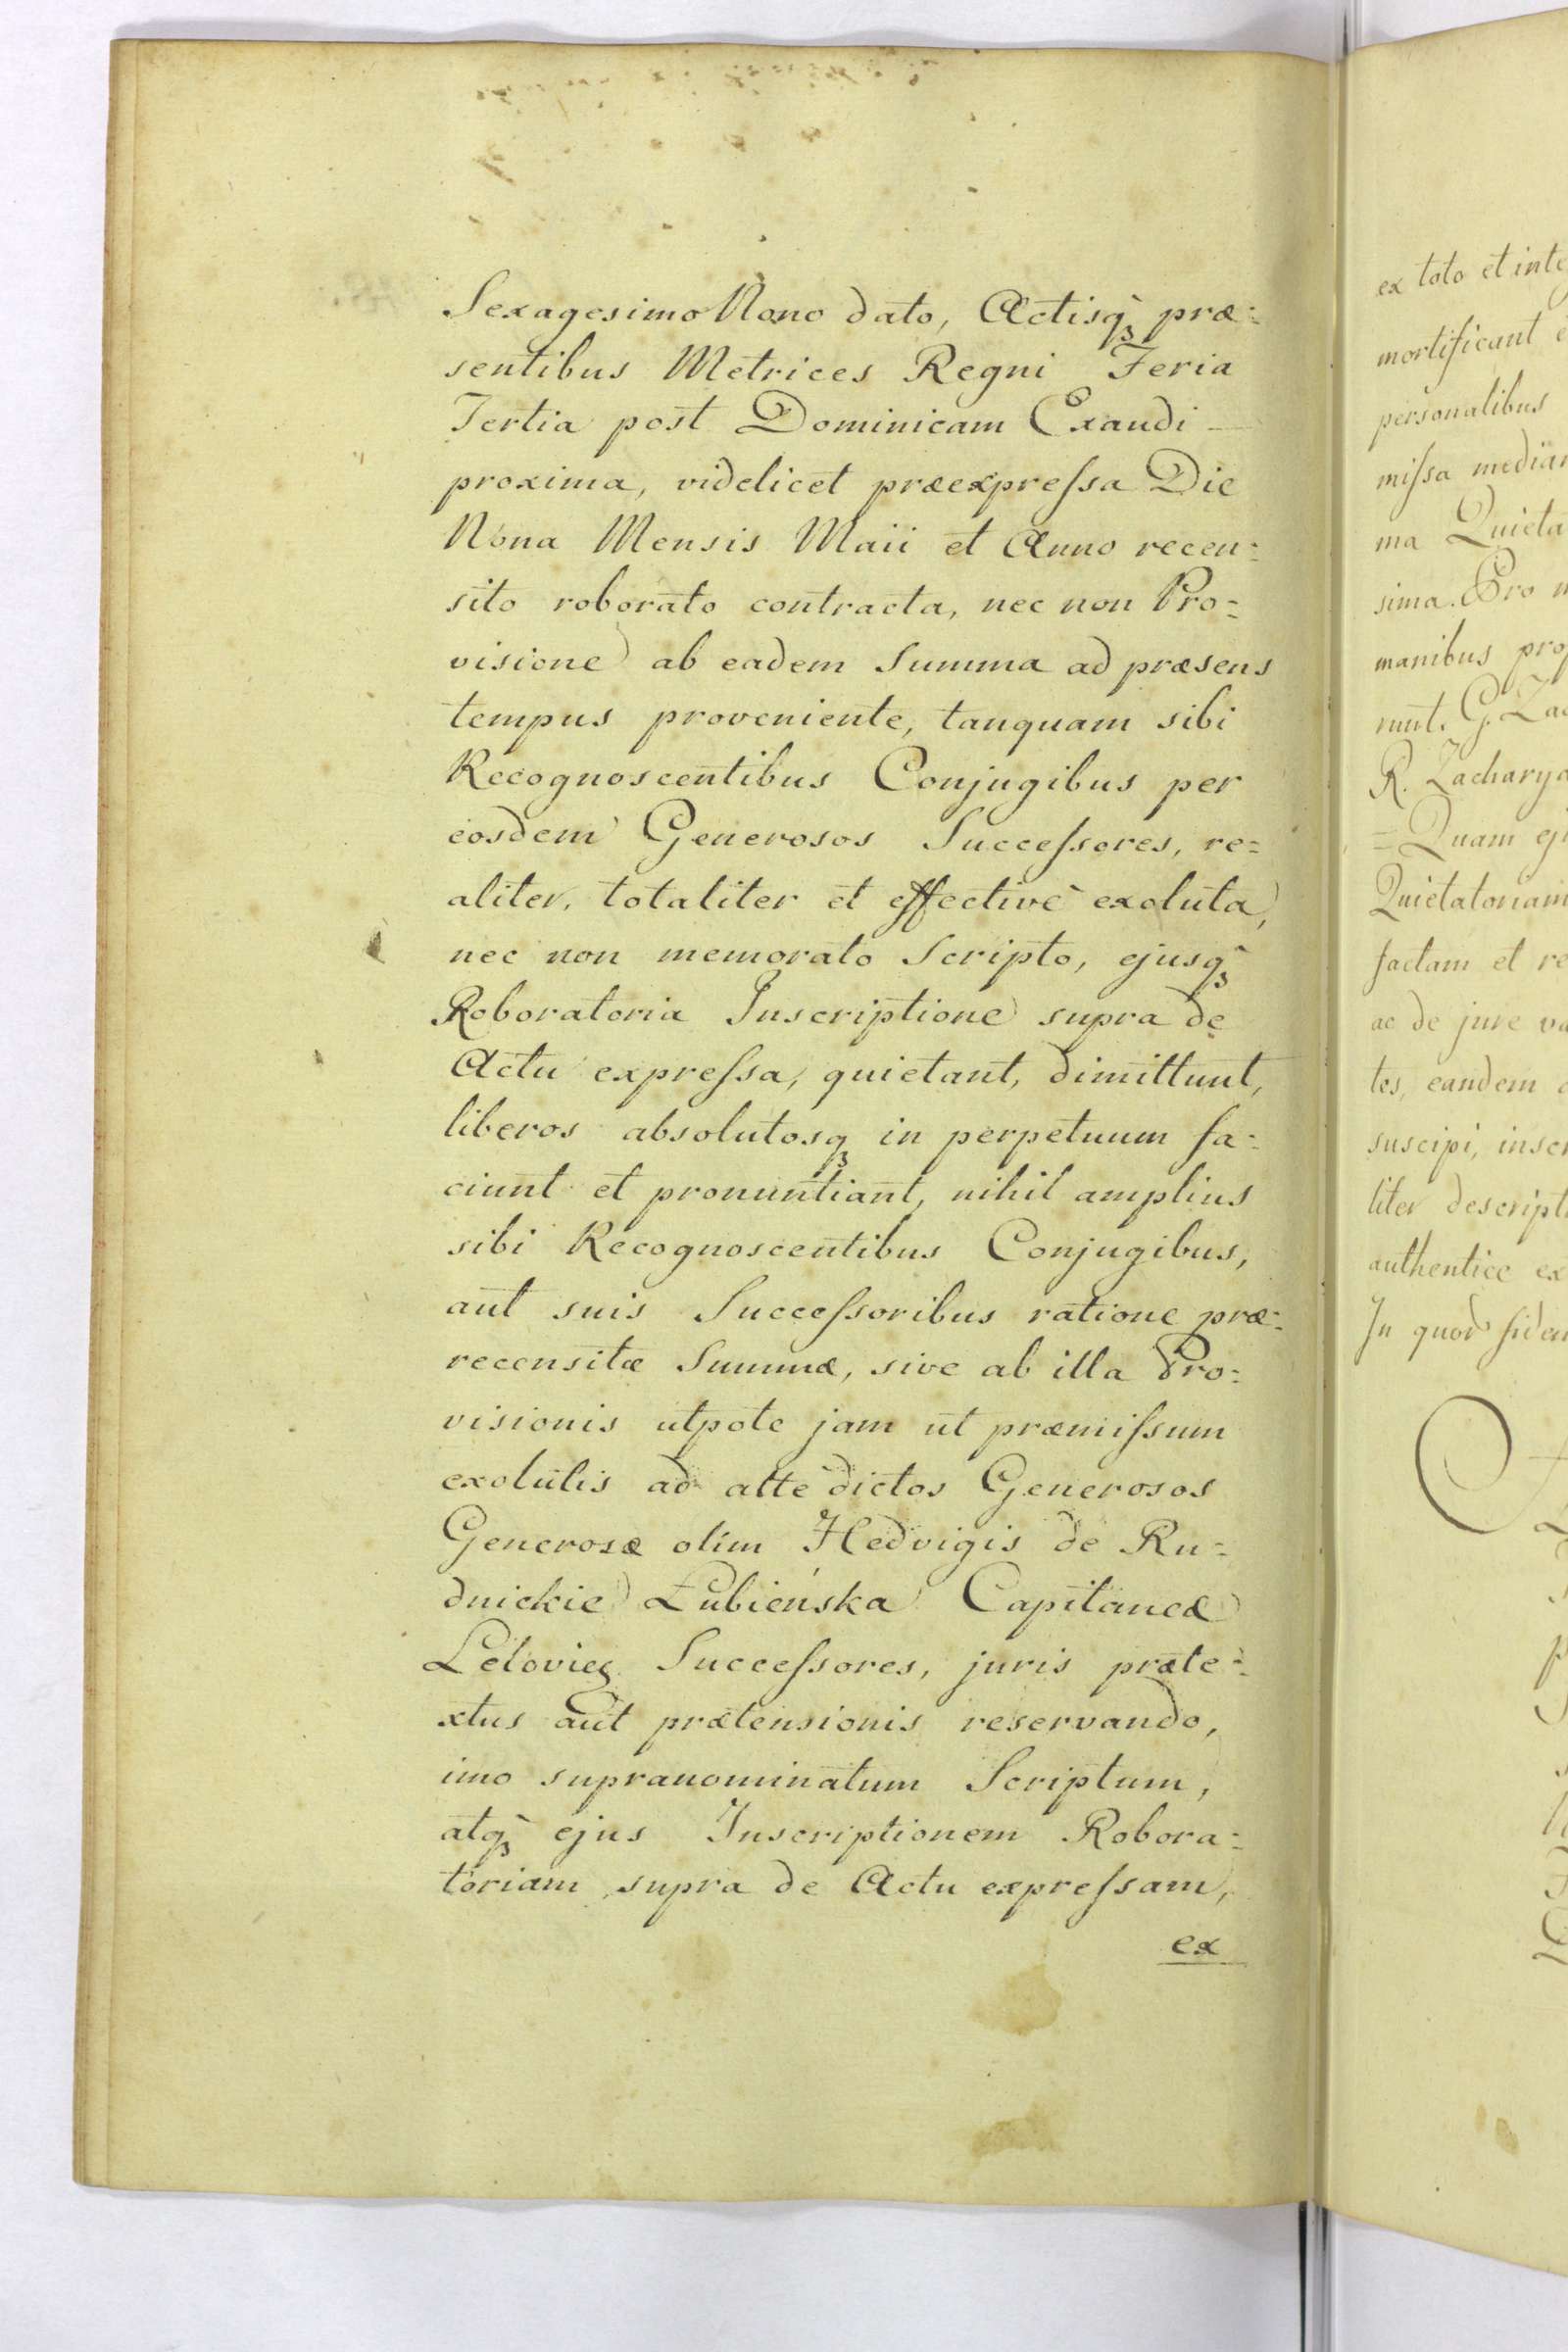 Sexagesimo Nono dato, Actisqꝫ præ=
sentibus Metrices Regni Feria
Tertia post Dominicam Exaudi —
proxima, videlicet præexpreſsa Die
Nona Mensis Maii et Anno recen=
sito roborato contracta, nec non Pro=
visione ab eadem Summa ad præsens
tempus proveniente, tanquam sibi
Recognoscentibus Conjugibus per
eosdem Generosos Succeſsores, re=
aliter, totaliter et effectivè exoluta,
nec non memorato Scripto, ejusqꝫ
Roboratoria Inscriptione supra de
Actu expreſsa, quietant, dimittunt,
liberos absolutosqꝫ in perpetuum fa=
ciunt et pronuntiant, nihil amplius
sibi Recognoscentibus Conjugibus,
aut suis Succeſsoribus ratione præ=
recensitæ Summæ, sive ab illa Pro=
visionis utpote jam ut præmiſsum
exolutis ad atte dictos Generosos
Generosæ olim Hedvigis de Ru=
dnickie Łubieńska Capitaneæ
Lelovieꝫ Succeſsores, juris præte=
xtus aut prætensionis reservando,
imo supranominatum Scriptum,
atqꝫ ejus Inscriptionem Robora=
toriam supra de Actu expreſsam,
ex
ex toto et inte
mortificant
personalibus
miſsa median
ma Quieta
sima. Pro
manibus pro
runt. G. Za
R. Zacharya
= Quam ej
Quietatoriam
factam et re
ac de jure va
tes, eandem
suscipi, inser
liter descript
authentice ex
In quor fidem